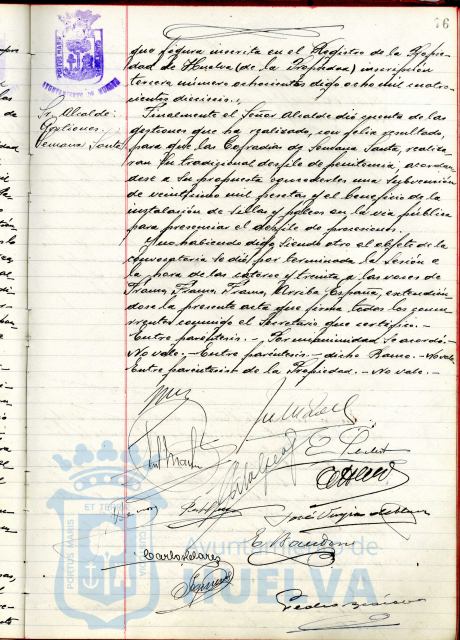 76
que figura inscrita en el Registro de la Propie-
dad de Huelva (de la Propiedad) inscripción
tercera número ochocientos digo ocho mil cuatro-
cientos dieciseis.,
Sr. Alcalde:
Gestiones
Semana Santa
Finalmente el Señor Alcalde dió cuenta de las
gestiones que ha realizado, con feliz resultado,
para que las Cofradías de Semana Santa, realiza-
ran su tradicional desfile de penitencia, acordán-
dose a su propuesta concederles una subvención
de veinticinco mil pesetas y el beneficio de la
instalación de sillas y palcos en la vía pública
para presenciar el desfile de procesiones.
Y no habiendo digo siendo otro el objeto de la
convocatoria se dió por terminada la sesión a
la hora de las catorce y treinta a las voces de
Franco, Franco, Franco, Arriba España, extendién-
dose la presente acta que firman todos los concu-
rrentes conmigo el Secretario que certifico.-
Entre paréntesis.- Por unanimidad se acordó.-
No vale.- Entre paréntesis.- dicho Ramo.- No vale
Entre paréntesis de la Propiedad.- No vale.-
José
Carlos
E.
Pedro
PORTUS MARIS
AYUNTAMIENTO DE HUELVA
PORTUS MARIS ET TERRAE CUSTODIA
Ayuntamiento de
HUELVA